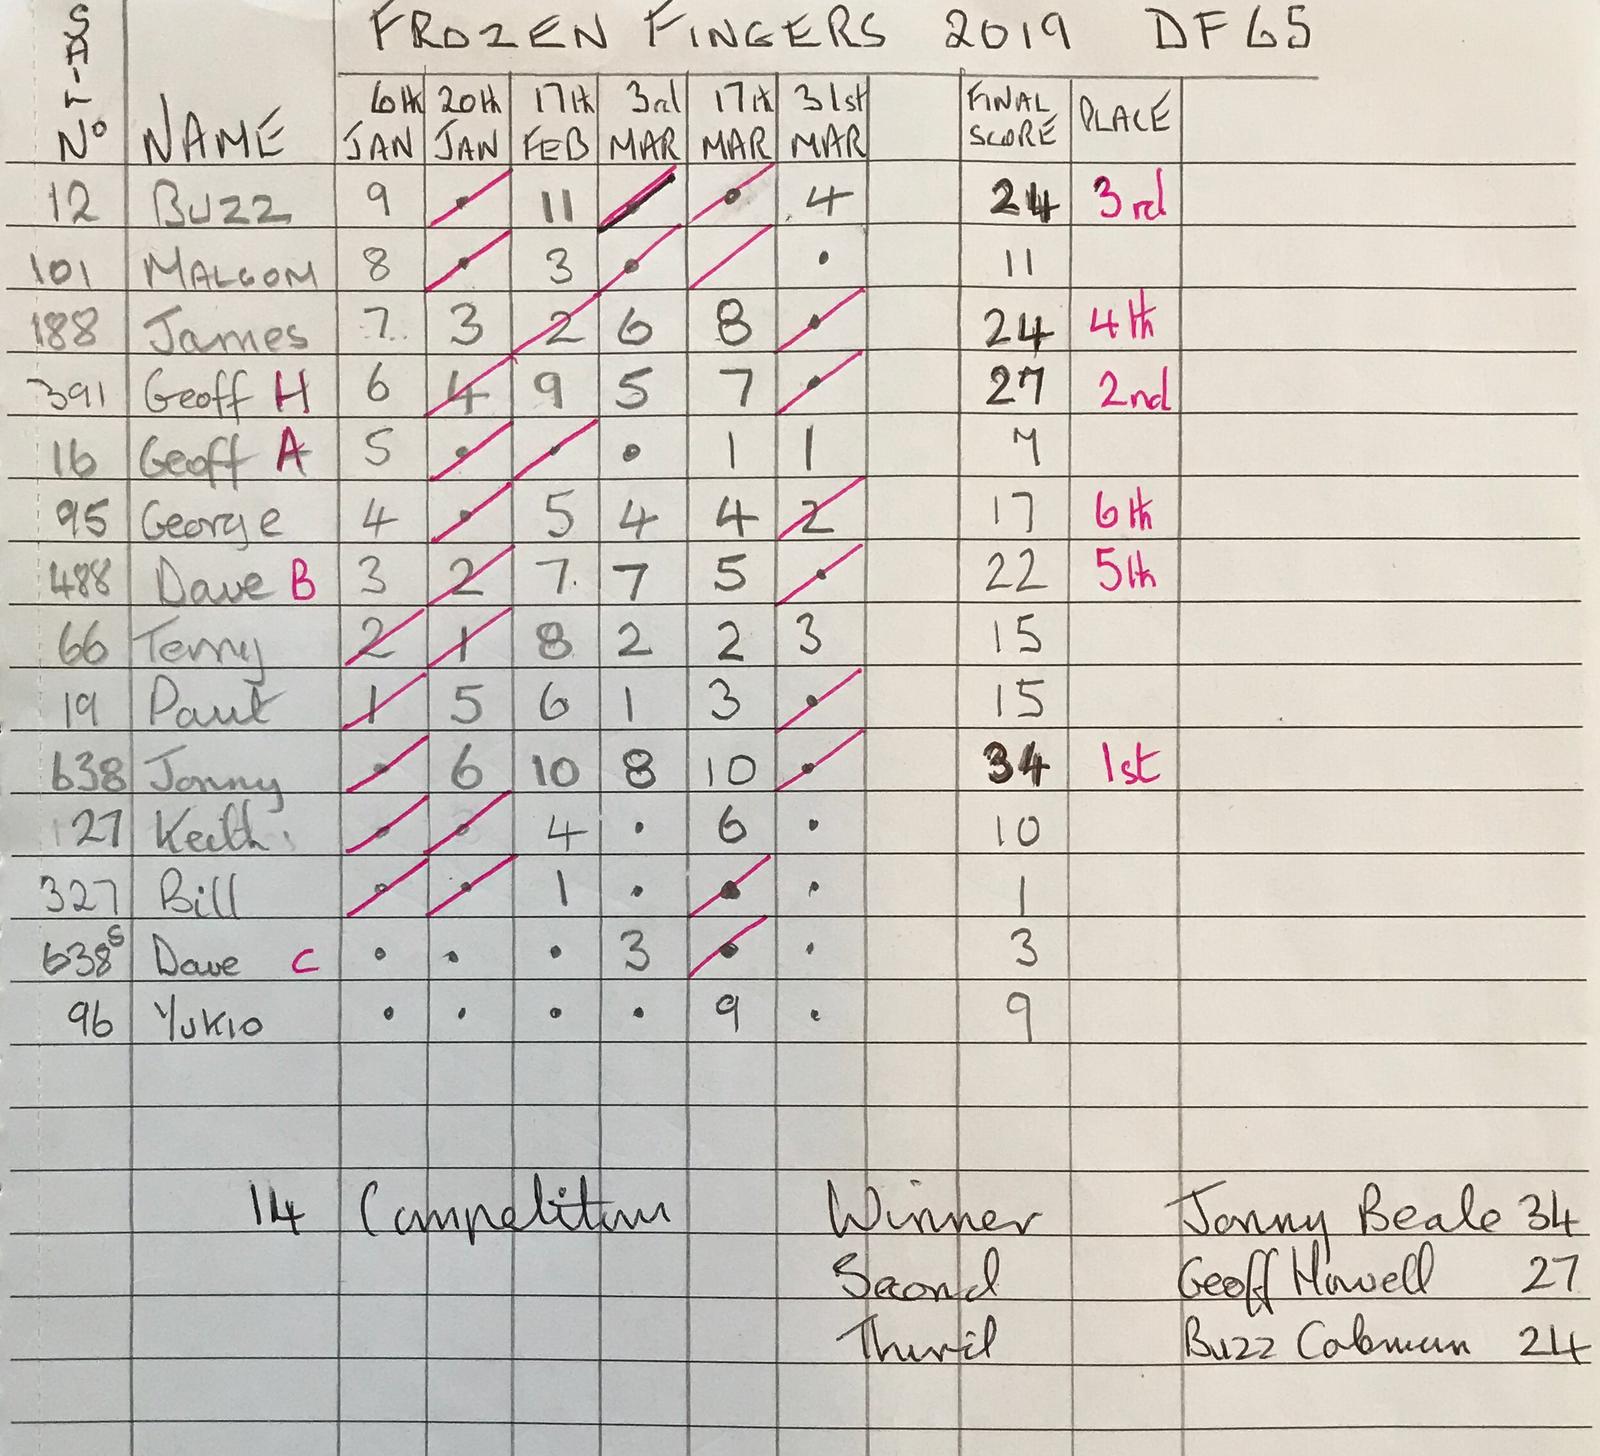 SAIL No NAME FROZEN FINGERS 2019 DF65
6th JAN 20th JAN 17th FEB 3rd MAR 17th MAR 31st MAR FINAL SCORE PLACE
12 BUZZ 9 • 11 • • 4 24 3rd
101 MALCOM 8 • 3 • • 11
188 James 7 3 2 6 8 • 24 4th
391 Geoff H 6 4 9 5 7 • 27 2nd
16 Geoff A 5 • • • 1 1 7
95 George 4 • 5 4 4 2 17 6th
488 Dave B 3 2 7 7 5 • 22 5th
66 Terry 2 1 8 2 2 3 15
19 Paul 1 5 6 1 3 • 15
638 Jonny • 6 10 8 10 • 34 1st
27 Keith • • 4 • 6 • 10
327 Bill • • 1 • • • 1
638s Dave C • • • 3 • • 3
96 YUKIO • • • • 9 • 9
14 Competitors Winner Jonny Beale 34
Second Geoff Howell 27
Third Buzz 24